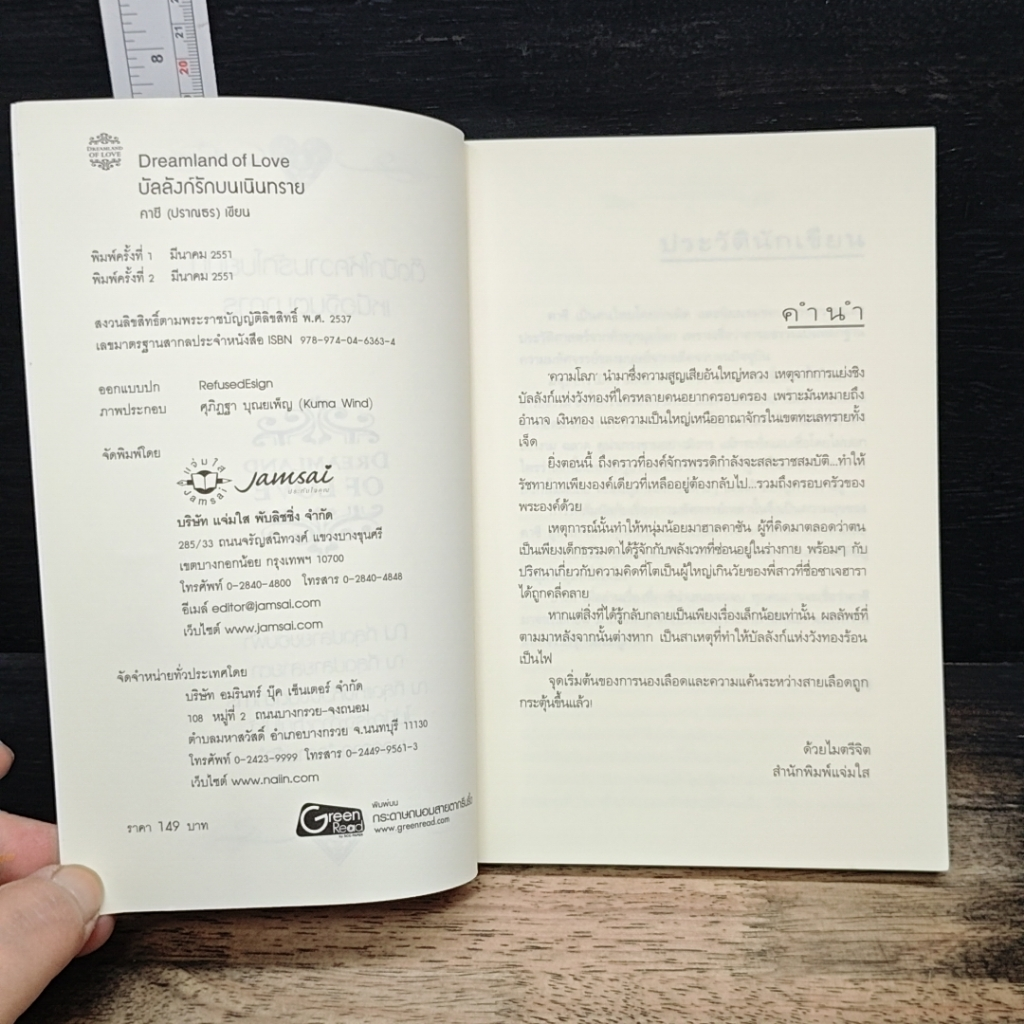 8
21
20
DREAMLAND
OF LOVE
Dreamland of Love
บัลลังก์รักบนเนินทราย
คาซี (ปราณธร) เขียน
พิมพ์ครั้งที่ 1 มีนาคม 2551
พิมพ์ครั้งที่ 2 มีนาคม 2551
สงวนลิขสิทธิ์ตามพระราชบัญญัติลิขสิทธิ์ พ.ศ. 2537
เลขมาตรฐานสากลประจำหนังสือ ISBN 978-974-04-6363-4
ออกแบบปก RefusedEsign
ภาพประกอบ ศุภิฏฐา บุณยเพ็ญ (Kuma Wind)
จัดพิมพ์โดย
แจ่มใส
Jamsai
Jamsai
บริษัท แจ่มใส พับลิชชิ่ง จำกัด
285/33 ถนนจรัญสนิทวงศ์ แขวงบางขุนศรี
เขตบางกอกน้อย กรุงเทพฯ 10700
โทรศัพท์ 0-2840-4800 โทรสาร 0-2840-4848
อีเมล์ editor@jamsai.com
เว็บไซต์ www.jamsai.com
จัดจำหน่ายทั่วประเทศโดย
บริษัท อมรินทร์ บุ๊ค เซ็นเตอร์ จำกัด
108 หมู่ที่ 2 ถนนบางกรวย-จงถนอม
ตำบลมหาสวัสดิ์ อำเภอบางกรวย จ.นนทบุรี 11130
โทรศัพท์ 0-2423-9999 โทรสาร 0-2449-9561-3
เว็บไซต์ www.naiin.com
ราคา 149 บาท
Green
Read
พิมพ์บน
กระดาษถนอมสายตากรีนรี้ด
www.greenread.com
คำนำ
'ความโลภ' นำมาซึ่งความสูญเสียอันใหญ่หลวง เหตุจากการแย่งชิง
บัลลังก์แห่งวังทองที่ใครหลายคนอยากครอบครอง เพราะมันหมายถึง
อำนาจ เงินทอง และความเป็นใหญ่เหนืออาณาจักรในเขตทะเลทรายทั้ง
เจ็ด
ยิ่งตอนนี้ ถึงคราวที่องค์จักรพรรดิกำลังจะสละราชสมบัติ...ทำให้
รัชทายาทเพียงองค์เดียวที่เหลืออยู่ต้องกลับไป...รวมถึงครอบครัวของ
พระองค์ด้วย
เหตุการณ์นั้นทำให้หนุ่มน้อยมาฮาลคาซัน ผู้ที่คิดมาตลอดว่าตน
เป็นเพียงเด็กธรรมดาได้รู้จักกับพลังเวทที่ซ่อนอยู่ในร่างกาย พร้อมๆ กับ
ปริศนาเกี่ยวกับความคิดที่โตเป็นผู้ใหญ่เกินวัยของพี่สาวที่ชื่อซาเจฮารา
ได้ถูกคลี่คลาย
หากแต่สิ่งที่ได้รู้กลับกลายเป็นเพียงเรื่องเล็กน้อยเท่านั้น ผลลัพธ์ที่
ตามมาหลังจากนั้นต่างหาก เป็นสาเหตุที่ทำให้บัลลังก์แห่งวังทองร้อน
เป็นไฟ
จุดเริ่มต้นของการนองเลือดและความแค้นระหว่างสายเลือดถูก
กระตุ้นขึ้นแล้ว!
ด้วยไมตรีจิต
สำนักพิมพ์แจ่มใส